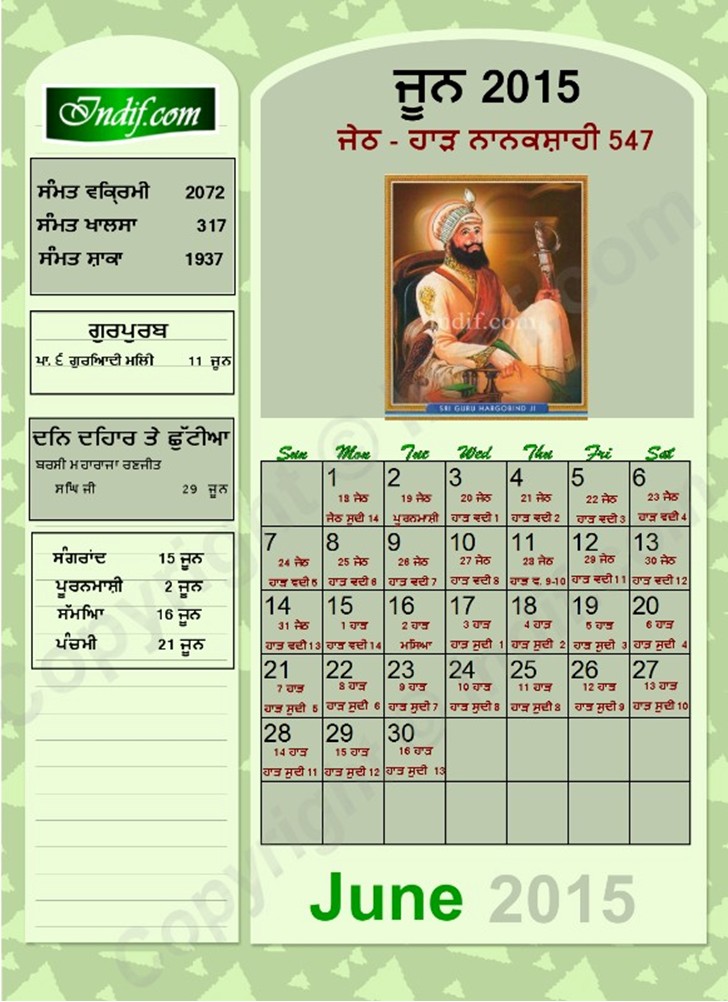 Indif.com
ਸੰਮਤ ਵਕ੍ਰਿਮੀ 2072
ਸੰਮਤ ਖਾਲਸਾ 317
ਸੰਮਤ ਸ਼ਾਕਾ 1937
ਗੁਰਪੁਰਬ
ਪਾ. ੬ ਗੁਰਆਿਦੀ ਮਲਿੀ 11 ਜੂਨ
ਦਨਿ ਦਹਿਾਰ ਤੇ ਛੁੱਟੀਆ
ਬਰਸੀ ਮਹਾਰਾਜਾ ਰਣਜੀਤ
ਸਘਿ ਜੀ 29 ਜੂਨ
ਸੰਗਰਾਂਦ 15 ਜੂਨ
ਪੂਰਨਮਾਸ਼ੀ 2 ਜੂਨ
ਸੱਮਆਿ 16 ਜੂਨ
ਪੰਚਮੀ 21 ਜੂਨ
ਜੂਨ 2015
ਜੇਠ - ਹਾੜ ਨਾਨਕਸ਼ਾਹੀ 547
indif.com
SRI GURU HARGOBIND JI
Sun Mon Tue Wed Thu Fri Sat
1 2 3 4 5 6
18 ਜੇਠ 19 ਜੇਠ 20 ਜੇਠ 21 ਜੇਠ 22 ਜੇਠ 23 ਜੇਠ
ਜੇਠ ਸੁਦੀ 14 ਪੂਰਨਮਾਸ਼ੀ ਹਾੜ ਵਦੀ 1 ਹਾੜ ਵਦੀ 2 ਹਾੜ ਵਦੀ 3 ਹਾੜ ਵਦੀ 4
7 8 9 10 11 12 13
24 ਜੇਠ 25 ਜੇਠ 26 ਜੇਠ 27 ਜੇਠ 28 ਜੇਠ 29 ਜੇਠ 30 ਜੇਠ
ਹਾੜ ਵਦੀ 5 ਹਾੜ ਵਦੀ 6 ਹਾੜ ਵਦੀ 7 ਹਾੜ ਵਦੀ 8 ਹਾੜ ਵ. 9-10 ਹਾੜ ਵਦੀ 11 ਹਾੜ ਵਦੀ 12
14 15 16 17 18 19 20
31 ਜੇਠ 1 ਹਾੜ 2 ਹਾੜ 3 ਹਾੜ 4 ਹਾੜ 5 ਹਾੜ 6 ਹਾੜ
ਹਾੜ ਵਦੀ 13 ਹਾੜ ਵਦੀ 14 ਮਸਿਆ ਹਾੜ ਸੁਦੀ 1 ਹਾੜ ਸੁਦੀ 2 ਹਾੜ ਸੁਦੀ 3 ਹਾੜ ਸੁਦੀ 4
21 22 23 24 25 26 27
7 ਹਾੜ 8 ਹਾੜ 9 ਹਾੜ 10 ਹਾੜ 11 ਹਾੜ 12 ਹਾੜ 13 ਹਾੜ
ਹਾੜ ਸੁਦੀ 5 ਹਾੜ ਸੁਦੀ 6 ਹਾੜ ਸੁਦੀ 7 ਹਾੜ ਸੁਦੀ 8 ਹਾੜ ਸੁਦੀ 8 ਹਾੜ ਸੁਦੀ 9 ਹਾੜ ਸੁਦੀ 10
28 29 30
14 ਹਾੜ 15 ਹਾੜ 16 ਹਾੜ
ਹਾੜ ਸੁਦੀ 11 ਹਾੜ ਸੁਦੀ 12 ਹਾੜ ਸੁਦੀ 13
June 2015